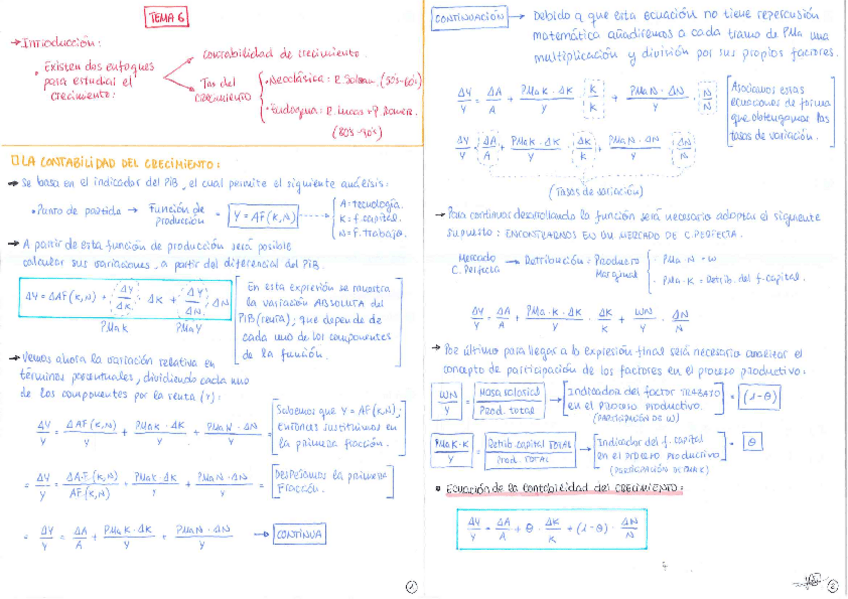 TEMA 6
→ Introducción:
• Existen dos enfoques
para estudiar el
crecimiento:
Contabilidad de crecimiento.
Tas del
CRECIMIENTO
• Neoclásica: R. Solow. (50's-60's)
• Endógena: R. Lucas + P. Romer.
(80's-90's)
LA CONTABILIDAD DEL CRECIMIENTO:
→ Se basa en el indicador del PIB, el cual permite el siguiente análisis:
• Punto de partida → Función de producción = Y = AF(K,N)
A = tecnología.
K = f. capital.
N = F. trabajo.
→ A partir de esta función de producción será posible
calcular sus variaciones, a partir del diferencial del PIB.
ΔY = ΔAF(K,N) + ΔY/ΔK · ΔK + ΔY/ΔN · ΔN
PMaK PMaY
En esta expresión se muestra
la variación ABSOLUTA del
PIB (renta); que depende de
cada uno de los componentes
de la función.
→ Vemos ahora la variación relativa en
términos porcentuales, dividiendo cada uno
de los componentes por la renta (Y):
ΔY/Y = ΔAF(K,N)/Y + PMaK · ΔK/Y + PMaN · ΔN/Y =
Sabemos que Y = AF(K,N);
entonces sustituimos en
la primera fracción.
= ΔY/Y = ΔA·F(K,N)/AF(K,N) + PMaK · ΔK/Y + PMaN · ΔN/Y =
Despejamos la primera
fracción.
= ΔY/Y = ΔA/A + PMaK · ΔK/Y + PMaN · ΔN/Y → CONTINUA
1
CONTINUACIÓN → Debido a que esta ecuación no tiene repercusión
matemática añadiremos a cada tramo de PMa una
multiplicación y división por sus propios factores.
ΔY/Y = ΔA/A + PMaK · ΔK/Y · K/K + PMaN · ΔN/Y · N/N
Asociamos estas
ecuaciones de forma
que obtengamos las
tasas de variación.
ΔY/Y = ΔA/A + PMaK · ΔK/Y · ΔK/K + PMaN · ΔN/Y · ΔN/N
(Tasas de variación)
→ Para continuar desarrollando la función será necesario adoptar el siguiente
supuesto: ENCONTRARNOS EN UN MERCADO DE C. PERFECTA.
Mercado C. Perfecta → Retribución = Producto Marginal
· PMa N = W
· PMa·K = Retrib. del f. capital.
ΔY/Y = ΔA/A + PMaK · ΔK/Y · ΔK/K + WN/Y · ΔN/N
→ Por último para llegar a la expresión final será necesario analizar el
concepto de participación de los factores en el proceso productivo:
WN/Y = Masa salarial/Prod. total → Indicador del factor TRABAJO
en el proceso productivo. = (1-θ)
(PARTICIPACIÓN DE W)
PMaK·K/Y = Retrib. capital TOTAL/Prod. TOTAL → Indicador del f. capital
en el proceso productivo = θ
(PARTICIPACIÓN DE PMAK)
• ECUACIÓN de la contabilidad del CRECIMIENTO:
ΔY/Y = ΔA/A + θ · ΔK/K + (1-θ) · ΔN/N
2